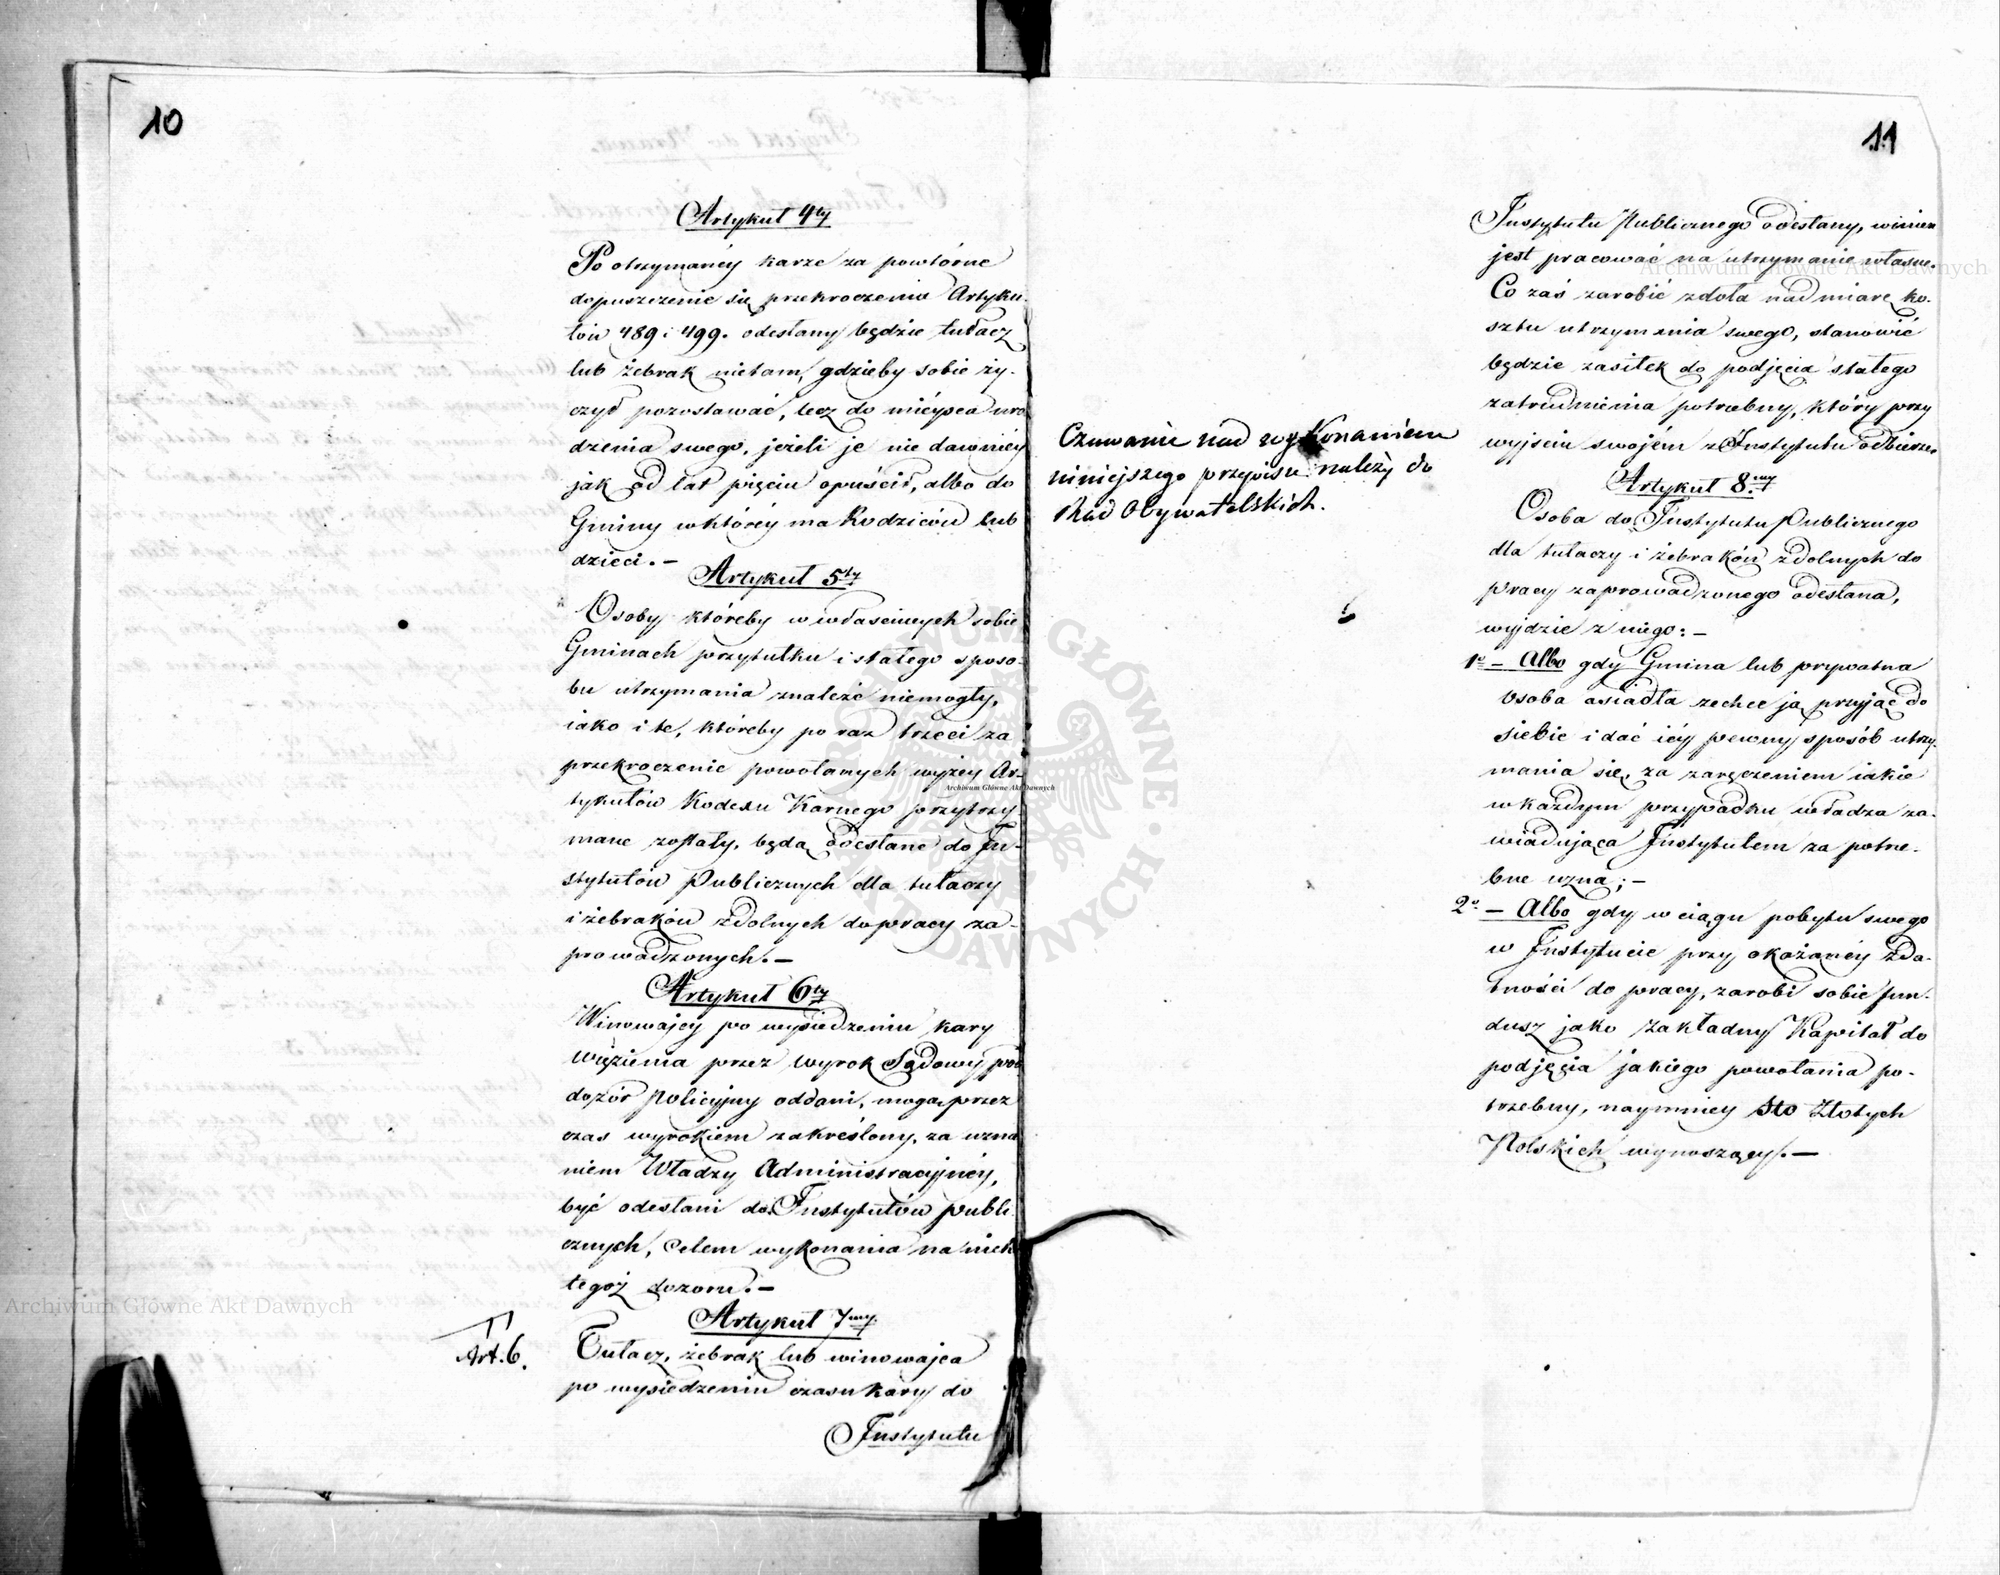 10
Artykuł 4ty
Po otrzymanéy karze za powtórne
dopuszczenie się przekroczenia Artyku-
łów 489 i 499. odesłany będzie tułacz
lub żebrak nietam, gdzieby sobie ży-
czył pozostawać, lecz do miéysca uro
dzenia swego, jeżeli je nie dawniéy
jak od lat pięciu opuścił, albo do
Gminy w któréy ma Rodziców lub
dzieci. —
Artykuł 5ty
Osoby któreby w właściwych sobie
Gminach przytułku i stałego sposo-
bu utrzymania znaleźć niemogły,
iako i te, któreby po raz trzeci za
przekroczenie powołanych wyżey Ar-
tykułów Kodexu Karnego przytrzy
mane zostały, będą odesłane do In-
stytutów Publicznych dla tułaczy
i żebraków zdolnych do pracy za-
prowadzonych. —
Artykuł 6ty
Winowajcy po wysiedzeniu kary
więzienia przez wyrok Sądowy pod
dozór Policyjny oddani, mogą przez
czas wyrokiem zakreślony, za uzna
niem Władzy Administracyjnéy,
być odesłani do Instytutów publi-
cznych, celem wykonania na nich
tegoż dozoru. —
Artykuł 7my
Art. 6.
Tułacz, żebrak lub winowajca
po wysiedzeniu czasu kary do
Instytutu
11
Czuwanie nad wykonaniem
niniejszego przepisu należy do
Rad Obywatelskich.
Instytutu Publicznego odesłany, winien
jest pracować na utrzymanie własne.
Co zaś zarobić zdoła nad miarę ko-
sztu utrzymania swego, stanowić
będzie zasiłek do podjęcia stałego
zatrudnienia potrzebny, który przy
wyjściu swojém z Instytutu odbierze.
Artykuł 8my
Osoba do Instytutu Publicznego
dla tułaczy i żebraków zdolnych do
pracy zaprowadzonego odesłana,
wyjdzie z niego: —
1o — Albo gdy Gmina lub prywatna
osoba osiadła zechce ją przyjąć do
siebie i dać iéy pewny sposób utrzy-
mania się, za zaręczeniem iakie
w każdym przypadku władza za-
wiadująca Instytutem za potrze-
bne uzna; —
2o — Albo gdy w ciągu pobytu swego
w Instytucie przy okazanéy zda-
tności do pracy, zarobi sobie fun-
dusz jako zakładny Kapitał do
podjęcia jakiego powołania po-
trzebny, naymniey sto Złotych
Polskich wynoszący. —
Archiwum Główne Akt Dawnych
Archiwum Główne Akt Dawnych
Archiwum Główne Akt Dawnych
ARCHIWUM GŁÓWNE AKT DAWNYCH